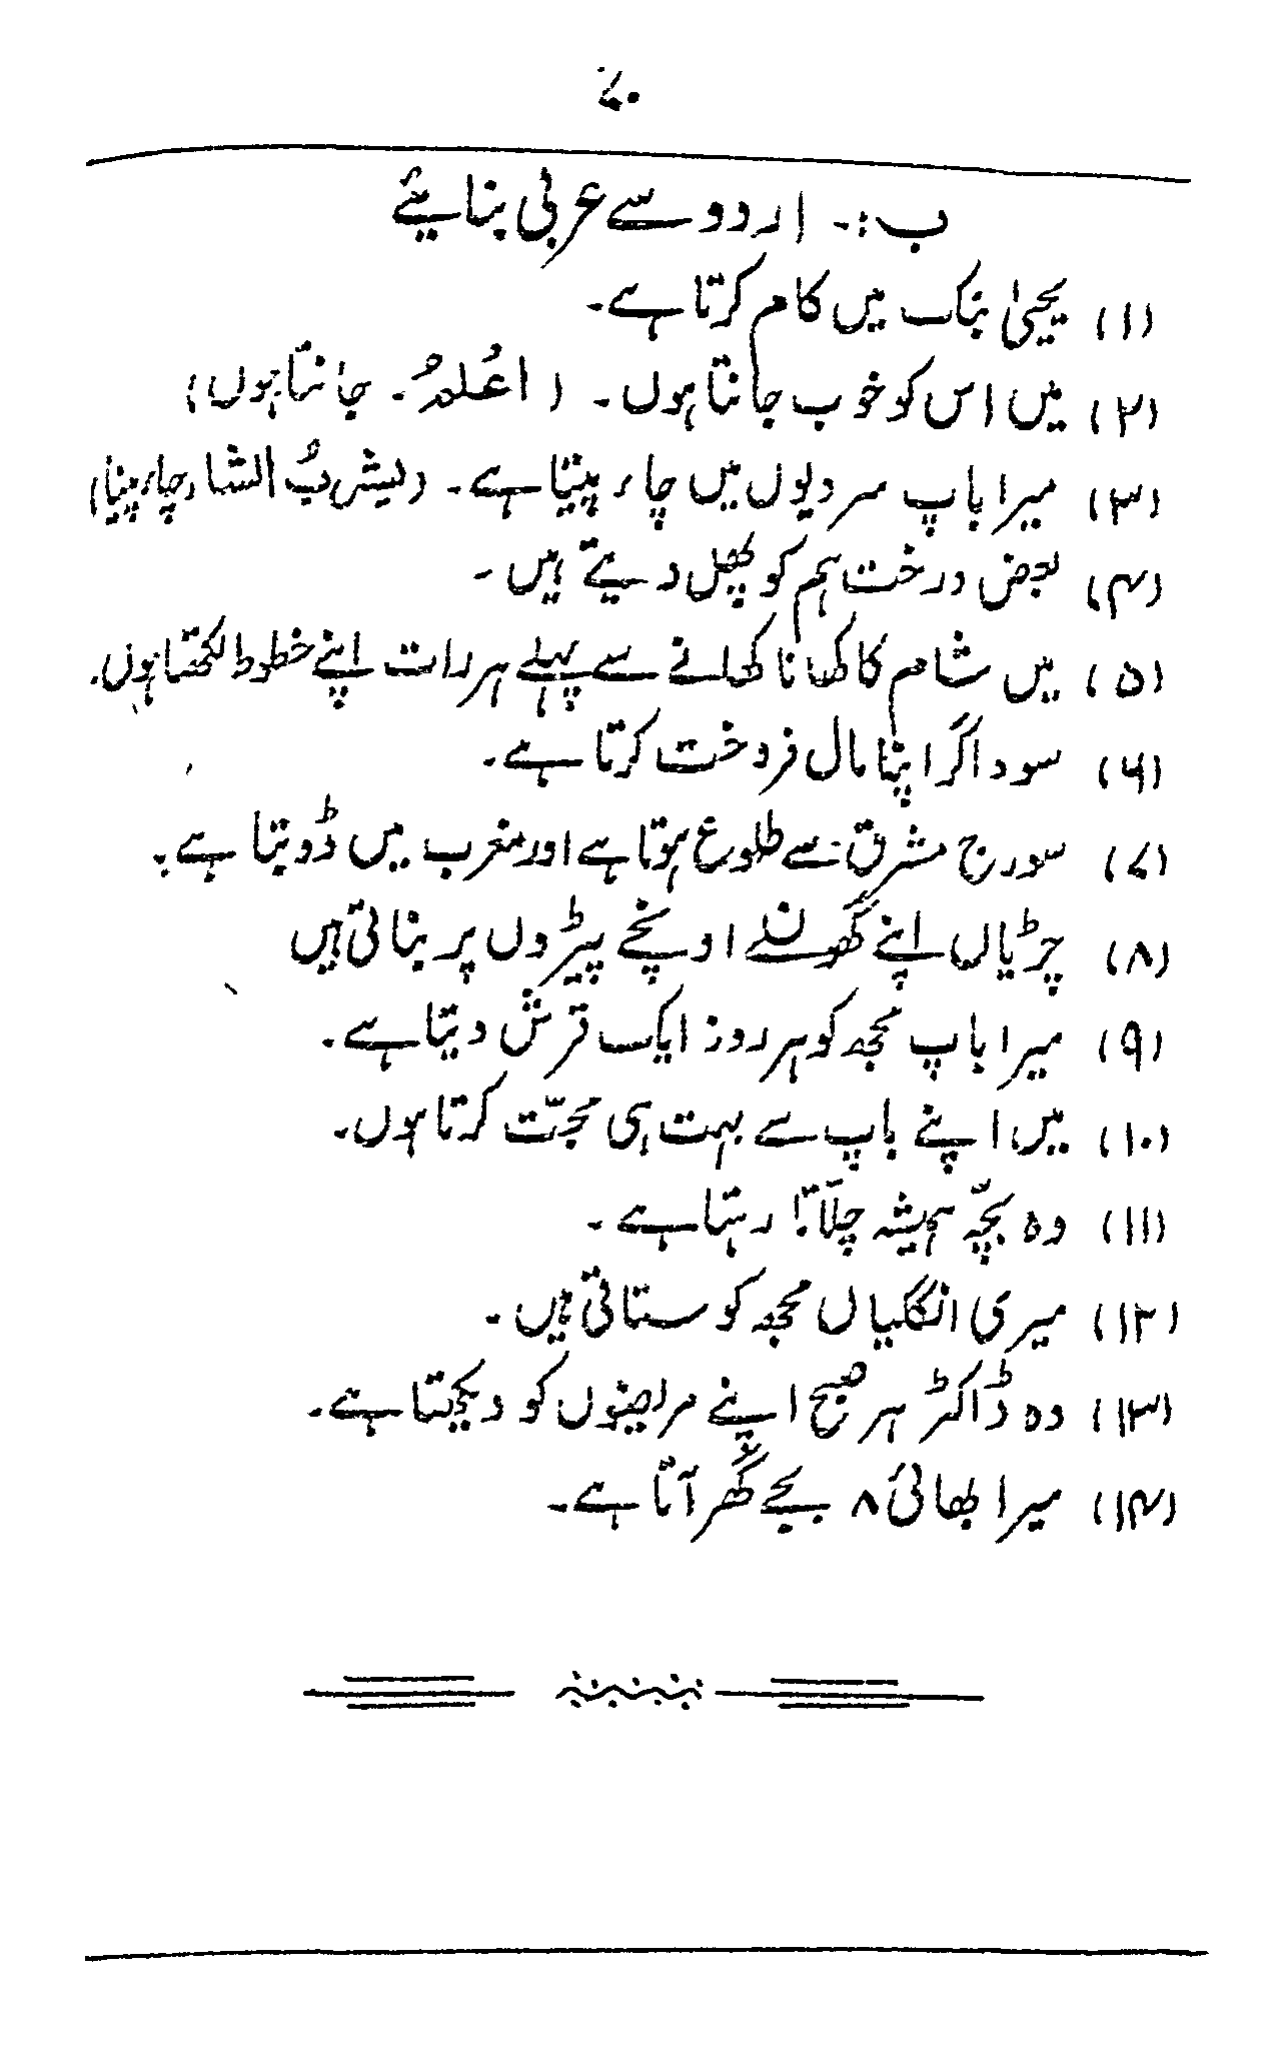 ۷۰
ب:۔ اردو سے عربی بنایئے
(۱) یحییٰ بنک میں کام کرتا ہے۔
(۲) میں اس کو خوب جانتا ہوں۔ (اعْلمُ۔ جانتا ہوں)
(۳) میرا باپ سردیوں میں چاء پیتا ہے۔ (یشربُ الشا، چاء پینا)
(۴) بعض درخت ہم کو پھل دیتے ہیں۔
(۵) میں شام کا کھانا کھانے سے پہلے ہر رات اپنے خطوط لکھتا ہوں۔
(۶) سوداگر اپنا مال فروخت کرتا ہے۔
(۷) سورج مشرق سے طلوع ہوتا ہے اور مغرب میں ڈوبتا ہے۔
(۸) چڑیاں اپنے گھونسلے اونچے پیڑوں پر بناتی ہیں
(۹) میرا باپ مجھ کو ہر روز ایک قرش دیتا ہے۔
(۱۰) میں اپنے باپ سے بہت ہی محبّت کرتا ہوں۔
(۱۱) وہ بچّہ ہمیشہ چلّاتا رہتا ہے۔
(۱۲) میری انگلیاں مجھ کو ستاتی ہیں۔
(۱۳) وہ ڈاکٹر ہر صبح اپنے مریضوں کو دیکھتا ہے۔
(۱۴) میرا بھائی ۸ بجے گھر آتا ہے۔